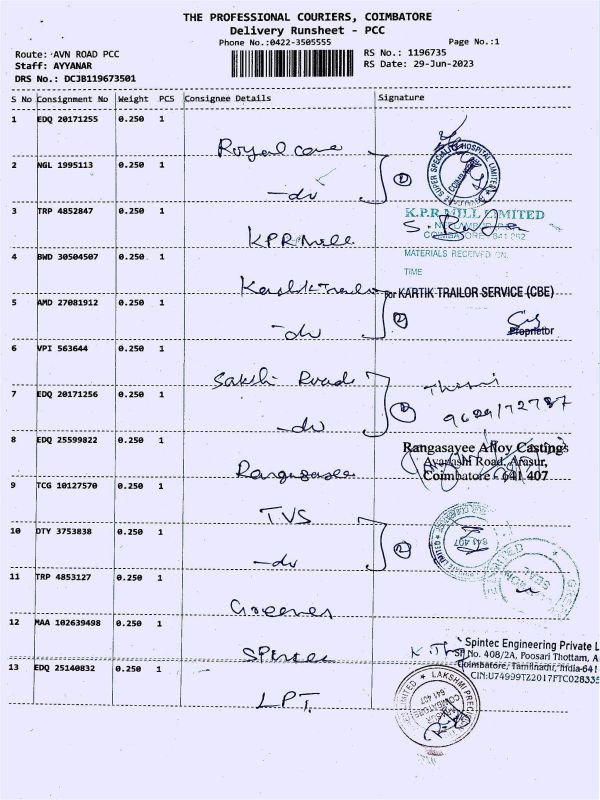 THE PROFESSIONAL COURIERS, COIMBATORE
Delivery Runsheet - PCC
Phone No.:0422-3505555
Page No.:1
Route: AVN ROAD PCC
RS No.: 1196735
Staff: AYYANAR
RS Date: 29-Jun-2023
DRS No.: DCJB119673501
S No Consignment No Weight PCS Consignee Details Signature
1 EDQ 20171255 0.250 1
Royal care
2 NGL 1995113 0.250 1
-do
SUPER SPECIALITY HOSPITAL LIMITED
3 TRP 4852847 0.250 1
KPR Mill
K.P.R MILL LIMITED
COIMBATORE - 641 252
4 BWD 30504507 0.250 1
MATERIALS RECEIVED ON.
TIME
for KARTIK TRAILOR SERVICE (CBE)
5 AMD 27081912 0.250 1
-do
Proprietor
6 VPI 563644 0.250 1
Sakthi Road
7 EDQ 20171256 0.250 1
-do
8 EDQ 25599822 0.250 1
Rangasayee Alloy Castings
Avanashi Road, Arasur,
Coimbatore - 641 407
9 TCG 10127570 0.250 1
TVS
10 DTY 3753838 0.250 1
-do
641 407
11 TRP 4853127 0.250 1
12 MAA 102639498 0.250 1
Spintec Engineering Private L
SF No. 408/2A, Poosari Thottam, A
Coimbatore, Tamilnadu, India-641
CIN:U74999TZ2017FTC028335
13 EDQ 25140832 0.250 1
LPT
LAKSHMI PRECI
COIMBATORE
641 407